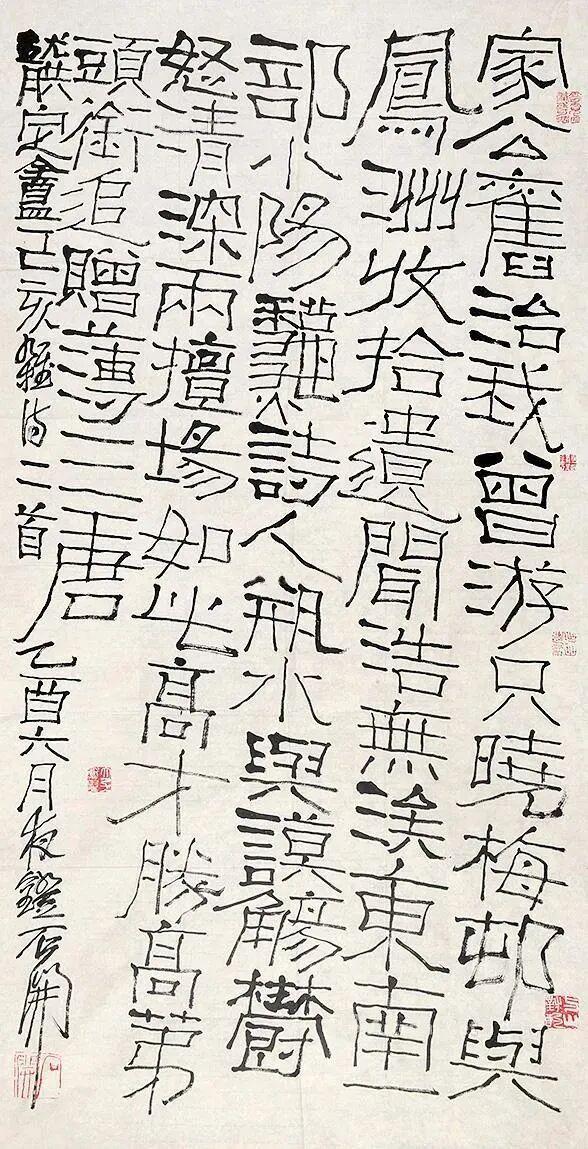 家公舊治我曾游只曉梅邨與
鳳洲收拾遺聞浩無涘東南一
部小陽龝詩人瓶水與謨觴鬱
怒清深兩擅場如此高才勝高第
頭銜追贈薄三唐
龔定盦己亥雜詩二首乙酉六月夜鐙石開